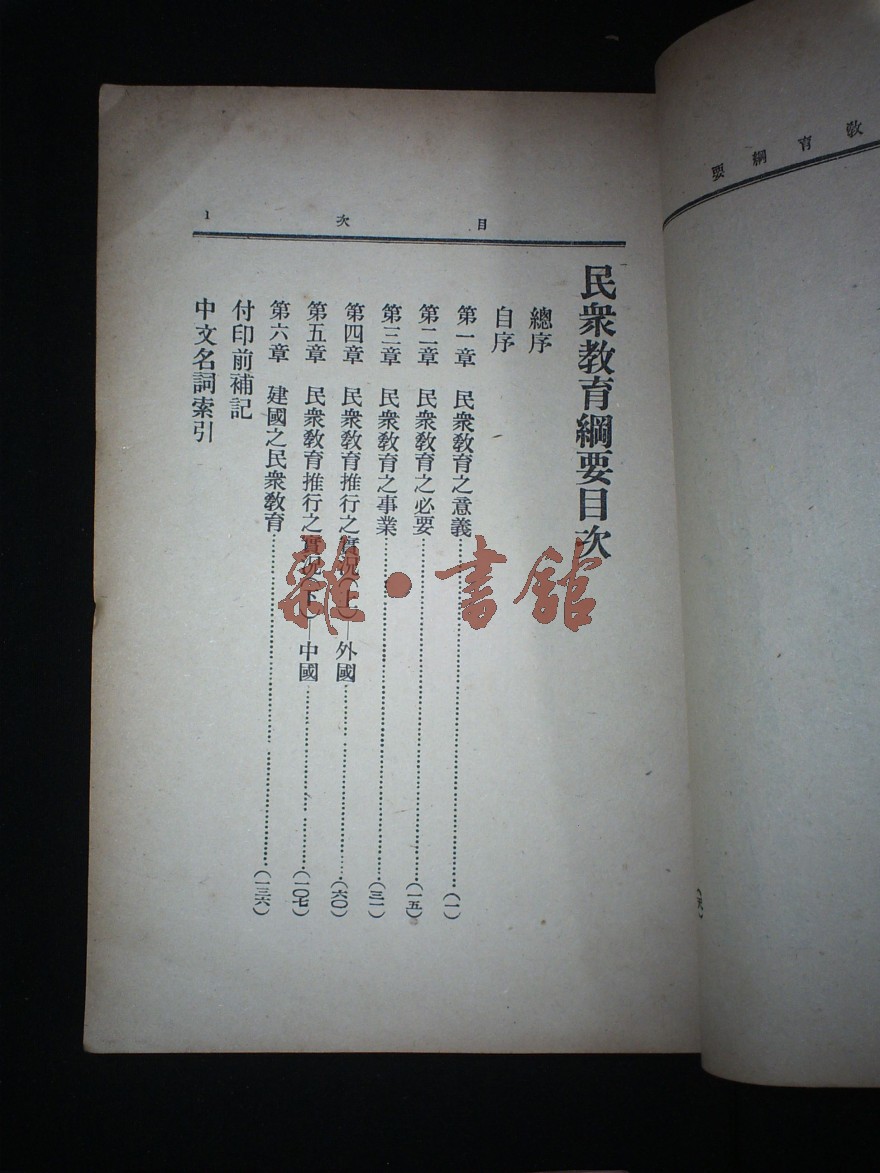 教育綱要
目次 1
民衆教育綱要目次
總序
自序
第一章 民衆教育之意義……(一)
第二章 民衆教育之必要……(一五)
第三章 民衆教育之事業……(三一)
第四章 民衆教育推行之實況(上)—外國……(六〇)
第五章 民衆教育推行之實況(下)—中國……(一〇七)
第六章 建國之民衆教育……(一三六)
付印前補記
中文名詞索引
雜·書館